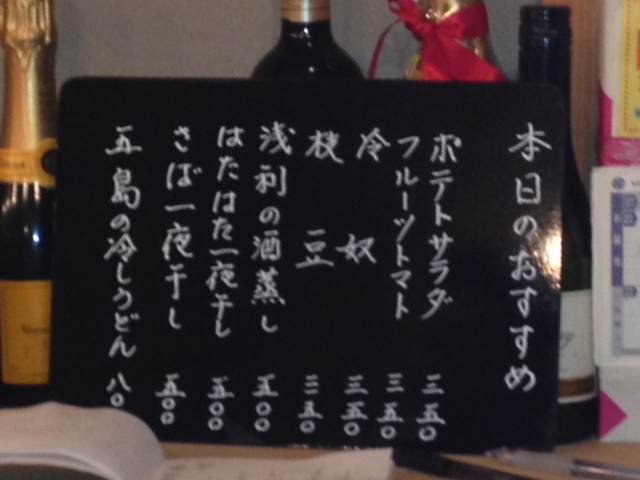 本日のおすすめ
ポテトサラダ 三五〇
フルーツトマト 三五〇
冷奴 三五〇
枝豆 二五〇
浅利の酒蒸し 五〇〇
はたはた一夜干し 五〇〇
さば一夜干し 五〇〇
五島の冷しうどん 八〇